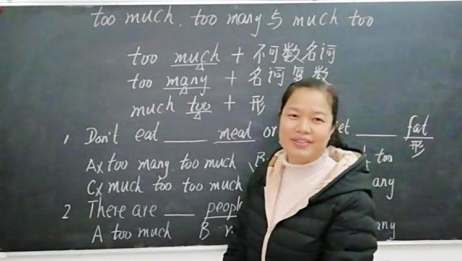 too much, too many 与 much too
too much + 不可数名词
too many + 名词复数
much too + 形
1 Don't eat ____ meat or ____ fat
形
A× too many, too much B too
C× much too too much any
2 There are ____ people
A too much B any